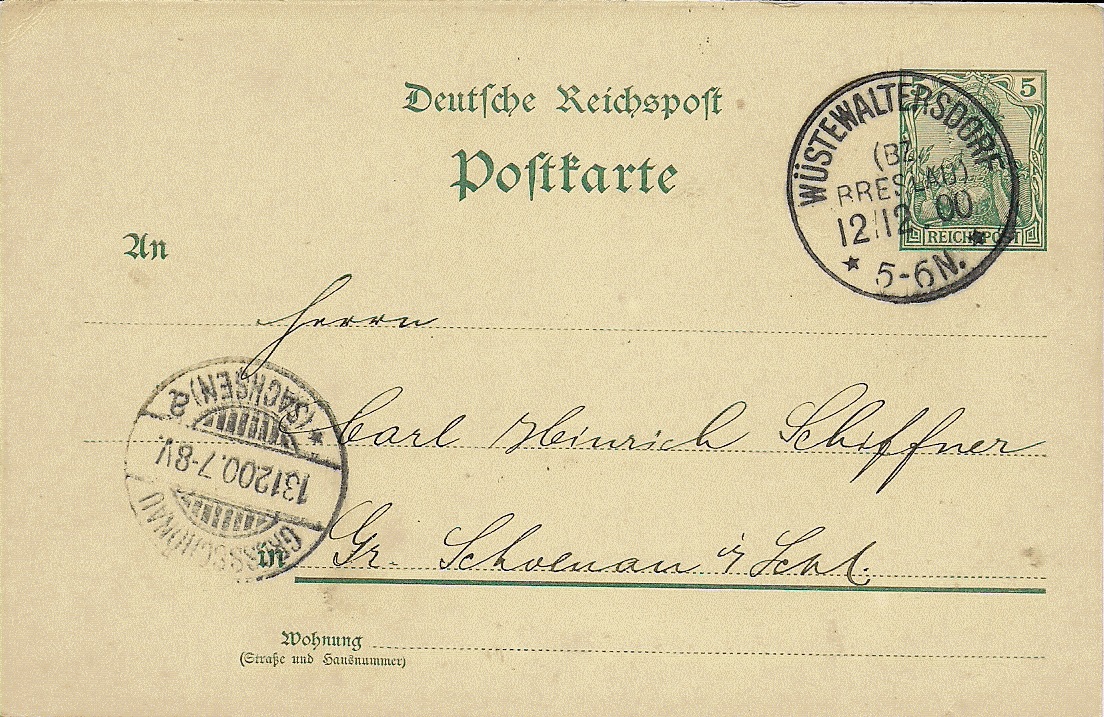 Deutsche Reichspost
Postkarte
5
REICHSPOST
WÜSTEWALTERSDORF
(BZ.
BRESLAU)
12/12.00
* 5-6N. *
An
Herrn
Carl Heinrich Schiffner
in Gr. Schoenau i/
Wohnung
(Straße und Hausnummer)
GROSSSCHÖNAU
131200.7-8V.
* (SACHSEN) a